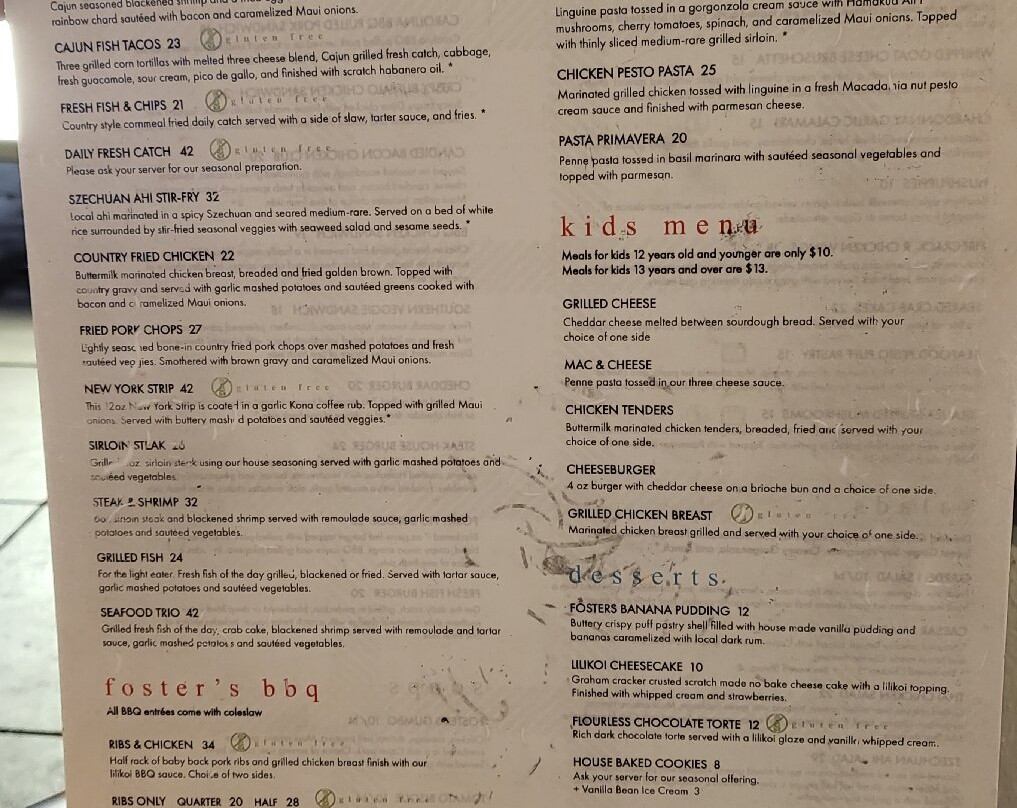 Cajun seasoned blackened shrimp and a
rainbow chard sautéed with bacon and caramelized Maui onions.
CAJUN FISH TACOS 23 gluten free
Three grilled corn tortillas with melted three cheese blend, Cajun grilled fresh catch, cabbage,
fresh guacamole, sour cream, pico de gallo, and finished with scratch habanero oil. *
FRESH FISH & CHIPS 21 gluten free
Country style cornmeal fried daily catch served with a side of slaw, tarter sauce, and fries. *
DAILY FRESH CATCH 42 gluten free
Please ask your server for our seasonal preparation.
SZECHUAN AHI STIR-FRY 32
Local ahi marinated in a spicy Szechuan and seared medium-rare. Served on a bed of white
rice surrounded by stir-fried seasonal veggies with seaweed salad and sesame seeds. *
COUNTRY FRIED CHICKEN 22
Buttermilk marinated chicken breast, breaded and fried golden brown. Topped with
country gravy and served with garlic mashed potatoes and sautéed greens cooked with
bacon and caramelized Maui onions.
FRIED PORK CHOPS 27
Lightly seasoned bone-in country fried pork chops over mashed potatoes and fresh
sautéed veggies. Smothered with brown gravy and caramelized Maui onions.
NEW YORK STRIP 42 gluten free
This 12oz New York Strip is coated in a garlic Kona coffee rub. Topped with grilled Maui
onions. Served with buttery mashed potatoes and sautéed veggies. *
SIRLOIN STEAK
Grilled oz. sirloin steak using our house seasoning served with garlic mashed potatoes and
sautéed vegetables.
STEAK & SHRIMP 32
sirloin steak and blackened shrimp served with remoulade sauce, garlic mashed
potatoes and sauteed vegetables.
GRILLED FISH 24
For the light eater. Fresh fish of the day grilled, blackened or fried. Served with tartar sauce,
garlic mashed potatoes and sautéed vegetables.
SEAFOOD TRIO 42
Grilled fresh fish of the day, crab cake, blackened shrimp served with remoulade and tartar
sauce, garlic mashed potatoes and sautéed vegetables.
foster's bbq
All BBQ entrées come with coleslaw
RIBS & CHICKEN 34 gluten free
Half rack of baby back pork ribs and grilled chicken breast finish with our
lilikoi BBQ sauce. Choice of two sides.
RIBS ONLY QUARTER 20 HALF 28 gluten free
Linguine pasta tossed in a gorgonzola cream sauce with Hamakua
mushrooms, cherry tomatoes, spinach, and caramelized Maui onions. Topped
with thinly sliced medium-rare grilled sirloin. *
CHICKEN PESTO PASTA 25
Marinated grilled chicken tossed with linguine in a fresh Macadamia nut pesto
cream sauce and finished with parmesan cheese.
PASTA PRIMAVERA 20
Penne pasta tossed in basil marinara with sautéed seasonal vegetables and
topped with parmesan.
kids menu
Meals for kids 12 years old and younger are only $10.
Meals for kids 13 years and over are $13.
GRILLED CHEESE
Cheddar cheese melted between sourdough bread. Served with your
choice of one side
MAC & CHEESE
Penne pasta tossed in our three cheese sauce.
CHICKEN TENDERS
Buttermilk marinated chicken tenders, breaded, fried and served with your
choice of one side.
CHEESEBURGER
4 oz burger with cheddar cheese on a brioche bun and a choice of one side.
GRILLED CHICKEN BREAST gluten free
Marinated chicken breast grilled and served with your choice of one side.
desserts
FOSTERS BANANA PUDDING 12
Buttery crispy puff pastry shell filled with house made vanilla pudding and
bananas caramelized with local dark rum.
LILIKOI CHEESECAKE 10
Graham cracker crusted scratch made no bake cheese cake with a lilikoi topping.
Finished with whipped cream and strawberries.
FLOURLESS CHOCOLATE TORTE 12 gluten free
Rich dark chocolate torte served with a lilikoi glaze and vanilla whipped cream.
HOUSE BAKED COOKIES 8
Ask your server for our seasonal offering.
+ Vanilla Bean Ice Cream 3